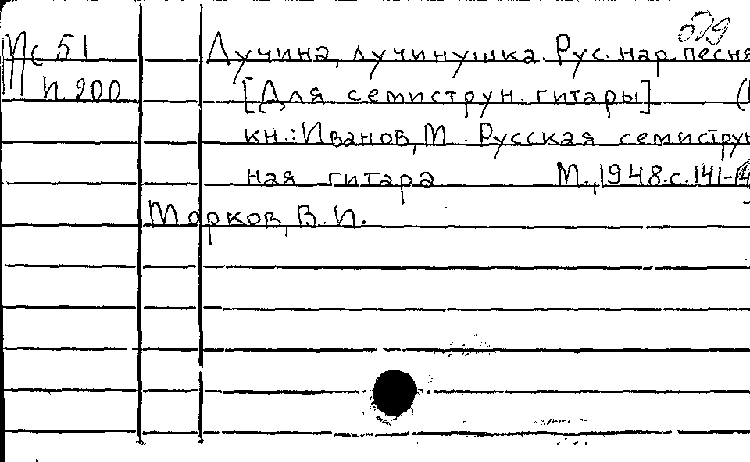 579
Мс 51 Лучина, лучинушка. Рус. нар. песня
И 200 [Для семиструн. гитары] (
кн.: Иванов, М. Русская семиструн
ная гитара М., 1948. с. 141-
Марков, В. И.